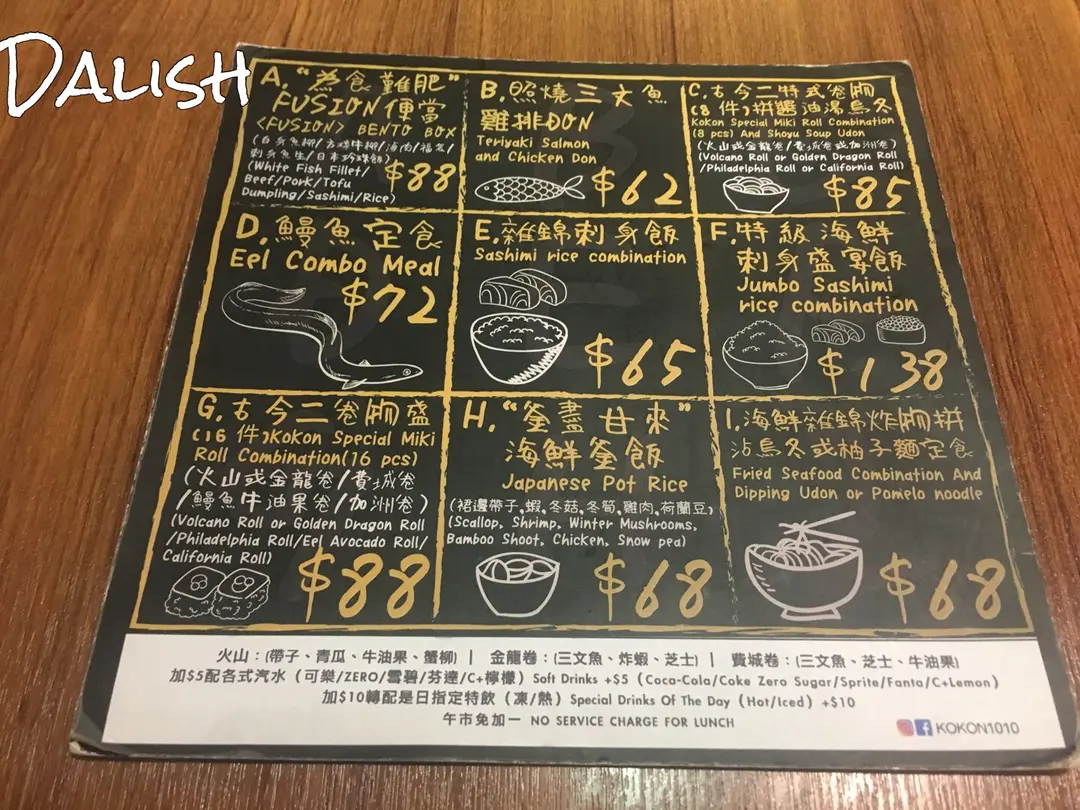 DALISH
A. "為食難肥"
FUSION便當
<FUSION> BENTO BOX
刺身魚生/日本珍珠飯)
(White Fish Fillet/
Beef/Pork/Tofu
Dumpling/Sashimi/Rice)
$88
B. 照燒三文魚
雞排DON
Teriyaki Salmon
and Chicken Don
$62
C. 古今二特式卷物
(8件)拼醬油湯烏冬
Kokon Special Miki Roll Combination
(8 pcs) And Shoyu Soup Udon
(火山或金龍卷/費城卷或加洲卷)
(Volcano Roll or Golden Dragon Roll
/Philadelphia Roll or California Roll)
$85
D. 鰻魚定食
Eel Combo Meal
$72
E. 雜錦刺身飯
Sashimi rice combination
$65
F. 特級海鮮
刺身盛宴飯
Jumbo Sashimi
rice combination
$138
G. 古今二卷物盛
(16件)Kokon Special Miki
Roll Combination(16 pcs)
(火山或金龍卷/費城卷
/鰻魚牛油果卷/加洲卷)
(Volcano Roll or Golden Dragon Roll
/Philadelphia Roll/Eel Avocado Roll/
California Roll)
$88
H. "釜盡甘來"
海鮮釜飯
Japanese Pot Rice
(裙邊帶子,蝦,冬菇,冬筍,雞肉,荷蘭豆)
(Scallop, Shrimp, Winter Mushrooms,
Bamboo Shoot, Chicken, Snow pea)
$68
I. 海鮮雜錦炸物拼
沾烏冬或柚子麵定食
Fried Seafood Combination And
Dipping Udon or Pomelo noodle
$68
火山:(帶子、青瓜、牛油果、蟹柳) | 金龍卷:(三文魚、炸蝦、芝士) | 費城卷:(三文魚、芝士、牛油果)
加$5配各式汽水 (可樂/ZERO/雪碧/芬達/C+檸檬) Soft Drinks +$5 (Coca-Cola/Coke Zero Sugar/Sprite/Fanta/C+Lemon)
加$10轉配是日指定特飲 (凍/熱) Special Drinks Of The Day (Hot/Iced) +$10
午市免加一 NO SERVICE CHARGE FOR LUNCH
KOKON1010